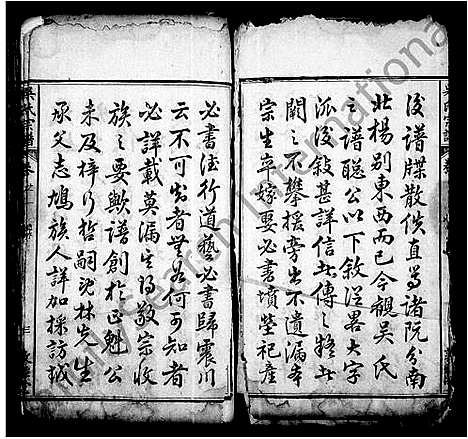 後譜牒散佚直等諸阮分南
北楊別東西而已今觀吳氏
之譜聰公以下敘從畧大字
派後敘甚詳信此傳之疑此
闕之不攀援旁出不遺漏本
宗生卒嫁娶必書墳塋祀產
必書德行道藝必書歸震川
云不可知者無如何可知者
必詳載莫漏生得敬宗收
族之要歟譜創於正魁公
未及梓行哲嗣 林先生
承父志鳩族人詳加採訪越
吳氏宗譜
卷之